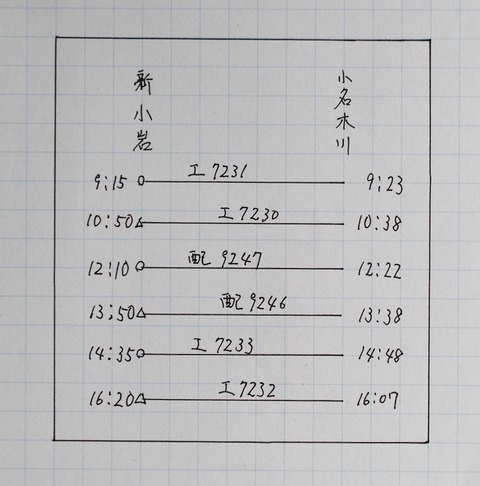 新小岩
小名木川
工7231
9:15 9:23
工7230
10:50 10:38
配9247
12:10 12:22
配9246
13:50 13:38
工7233
14:35 14:48
工7232
16:20 16:07